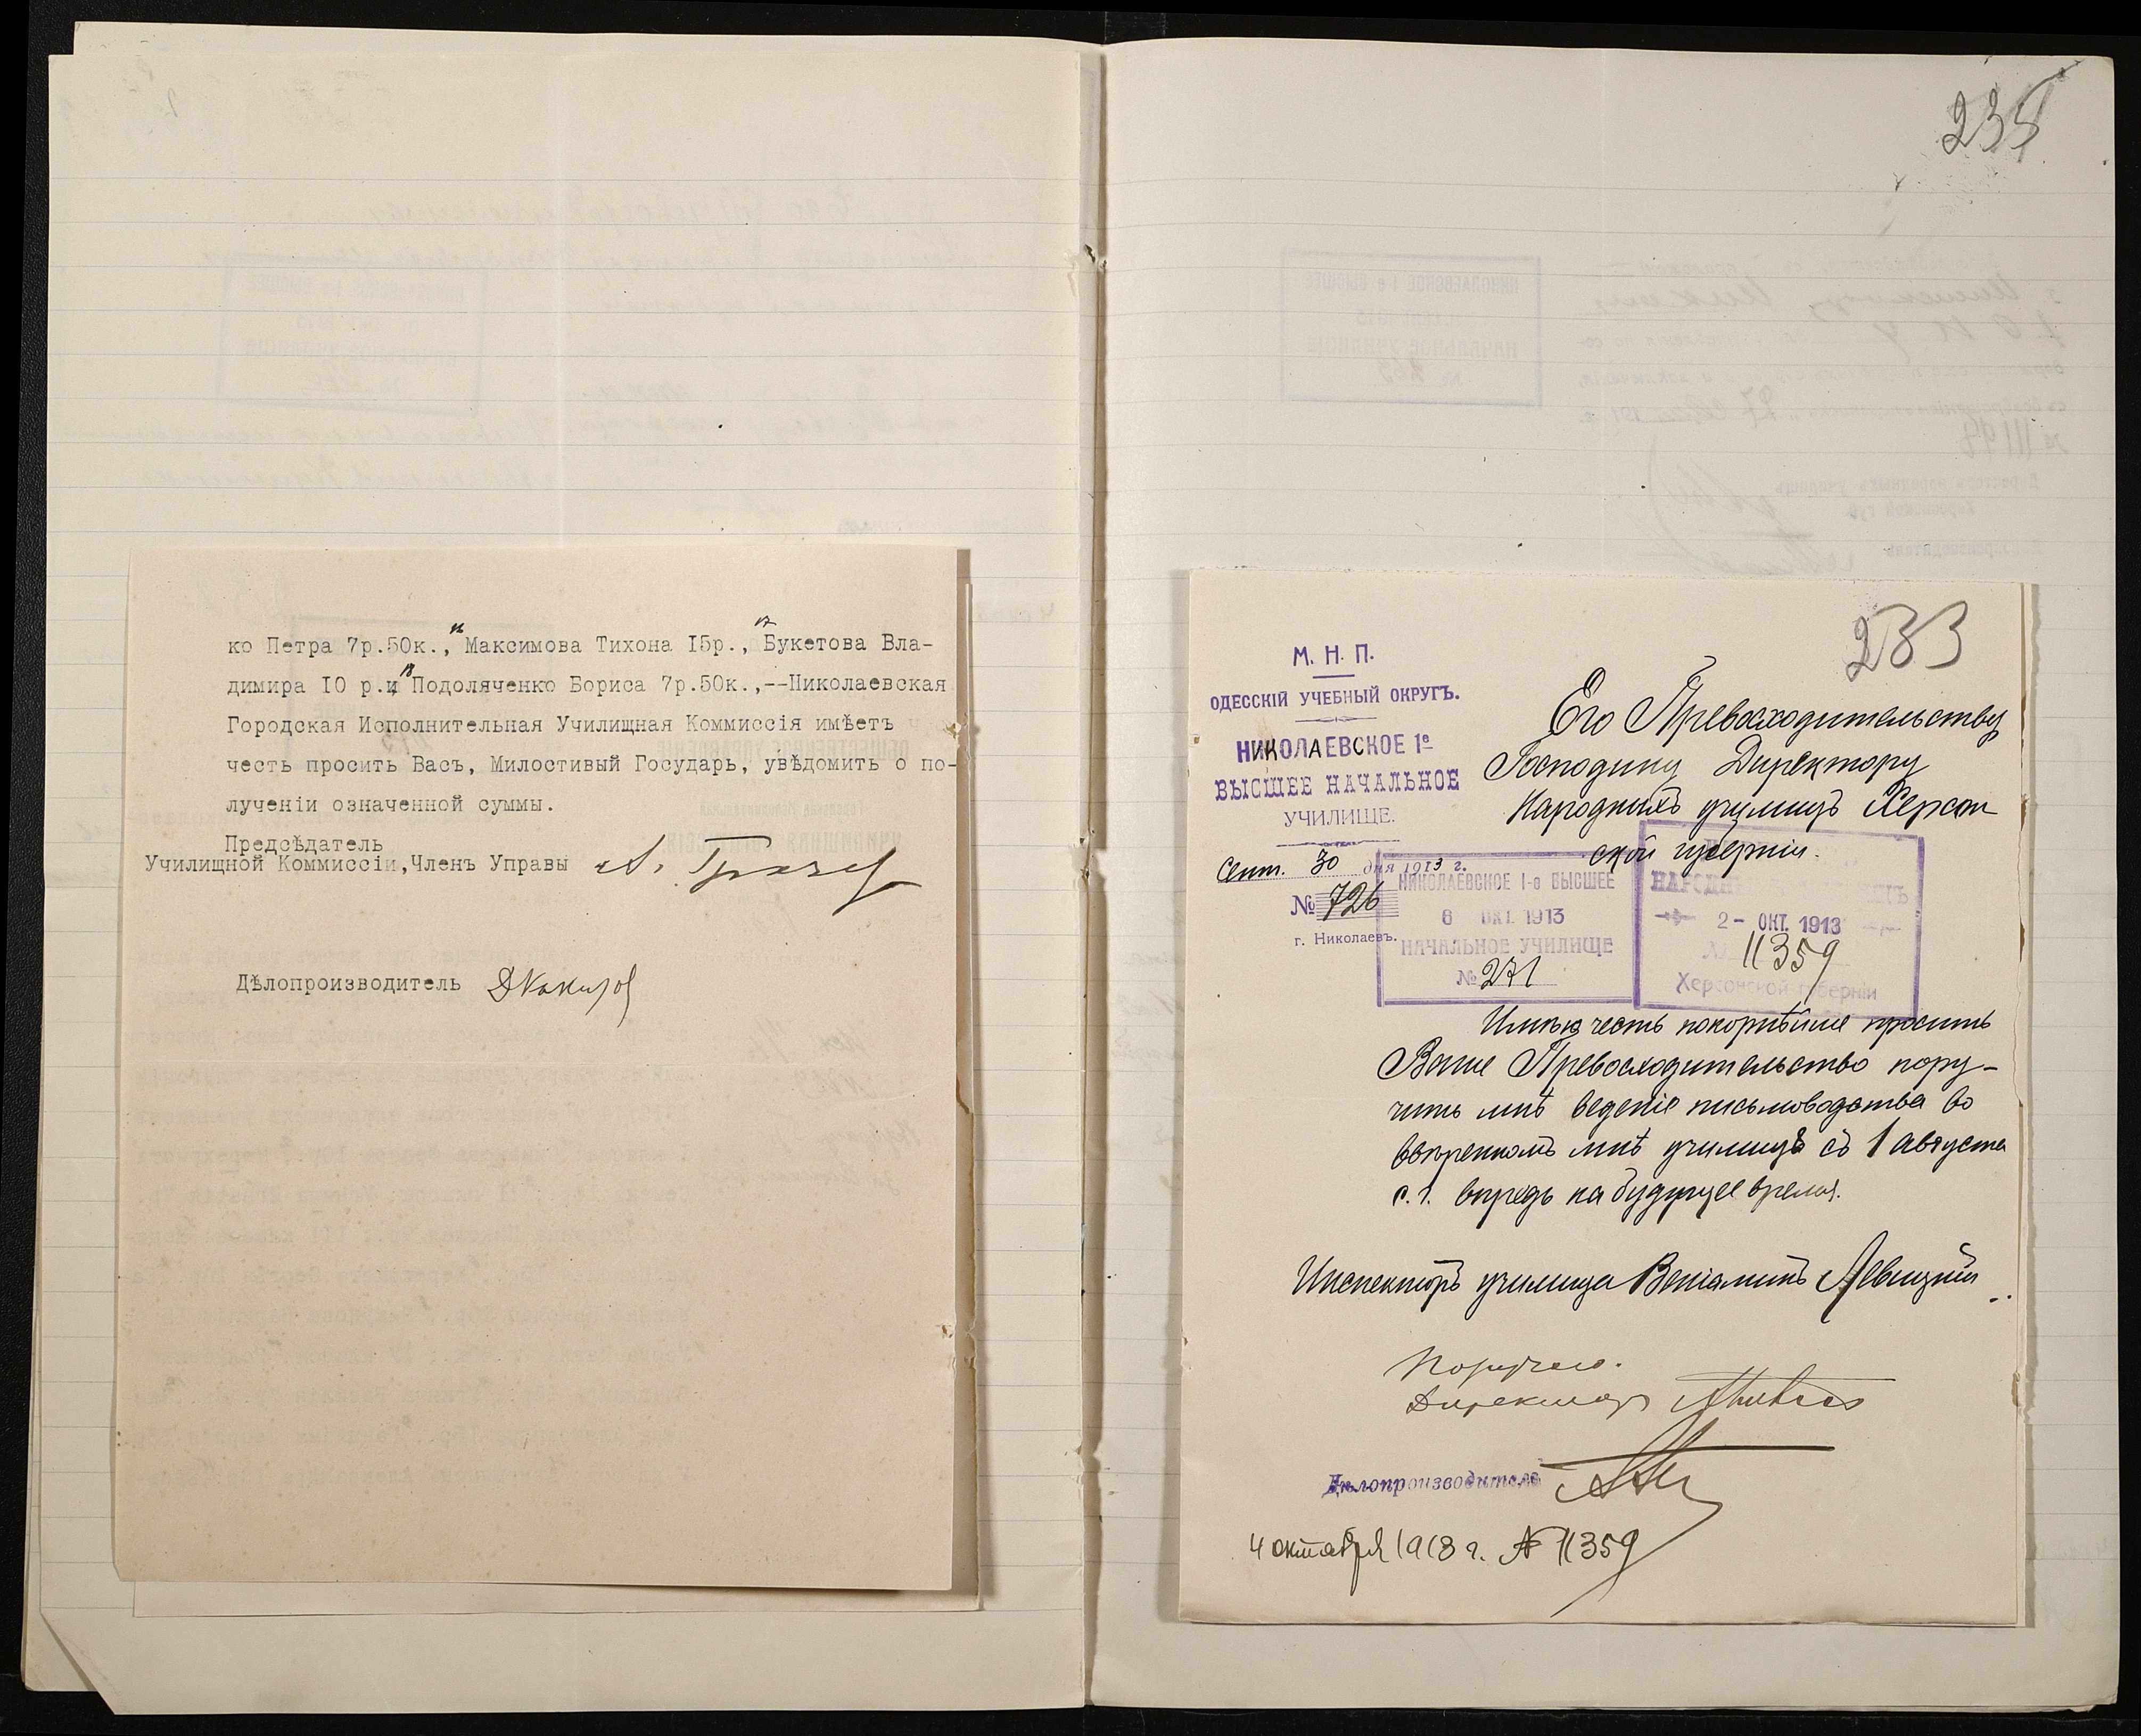 ко Петра 7р.50к., Максимова Тихона I5р., Букетова Вла-
димира I0 р.и Подоляченко Бориса 7р.50к.,--Николаевская
Городская Исполнительная Училищная Коммиссія имѣетъ
честь просить Васъ, Милостивый Государь, увѣдомить о по-
лученіи означенной суммы.
Предсѣдатель
Училищной Коммиссіи,Членъ Управы
Дѣлопроизводитель
238
233
М. Н. П.
ОДЕССКІЙ УЧЕБНЫЙ ОКРУГЪ.
НИКОЛАЕВСКОЕ 1е
ВЫСШЕЕ НАЧАЛЬНОЕ
УЧИЛИЩЕ.
Сент. 30 дня 1913 г.
№ 726
г. Николаевъ.
Его Превосходительству
Господину Директору
Народныхъ училищъ Херсон
ской губерніи.
НИКОЛАЕВСКОЕ I-е ВЫСШЕЕ
6 ОКТ. 1913
НАЧАЛЬНОЕ УЧИЛИЩЕ
№ 271
2- ОКТ. 1913
№ 11359
Херсонской губерніи
Имѣю честь покорнѣйше просить
Ваше Превосходительство пору-
чить мнѣ веденіе письмоводства во
ввѣренномъ мнѣ училищѣ съ 1 августа
с. г. впредь на будущее время.
Инспекторъ училища Веніаминъ Левицкій
Поручаю.
Директоръ
Дѣлопроизводитель
4 октября 1913 г. № 11359